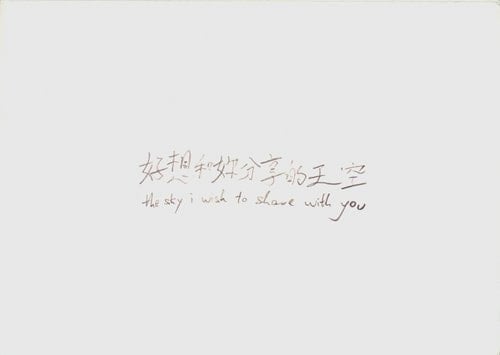 好想和妳分享的天空
the sky i wish to share with you